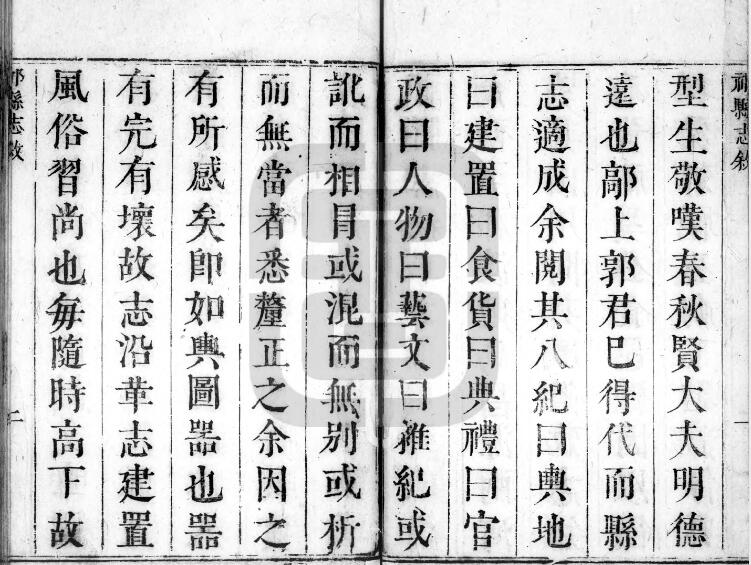 祁縣志敘
一
型生敬嘆春秋賢大夫明德
遠也鄗上郭君已得代而縣
志適成余閱其八紀曰輿地
曰建置曰食貨曰典禮曰官
政曰人物曰藝文曰雜紀或
訛而相冒或混而無别或析
而無當者悉釐正之余因之
有所感矣卽如輿圖噐也噐
有完有壞故志沿革志建置
風俗習尚也每隨時高下故
祁縣志敘
二